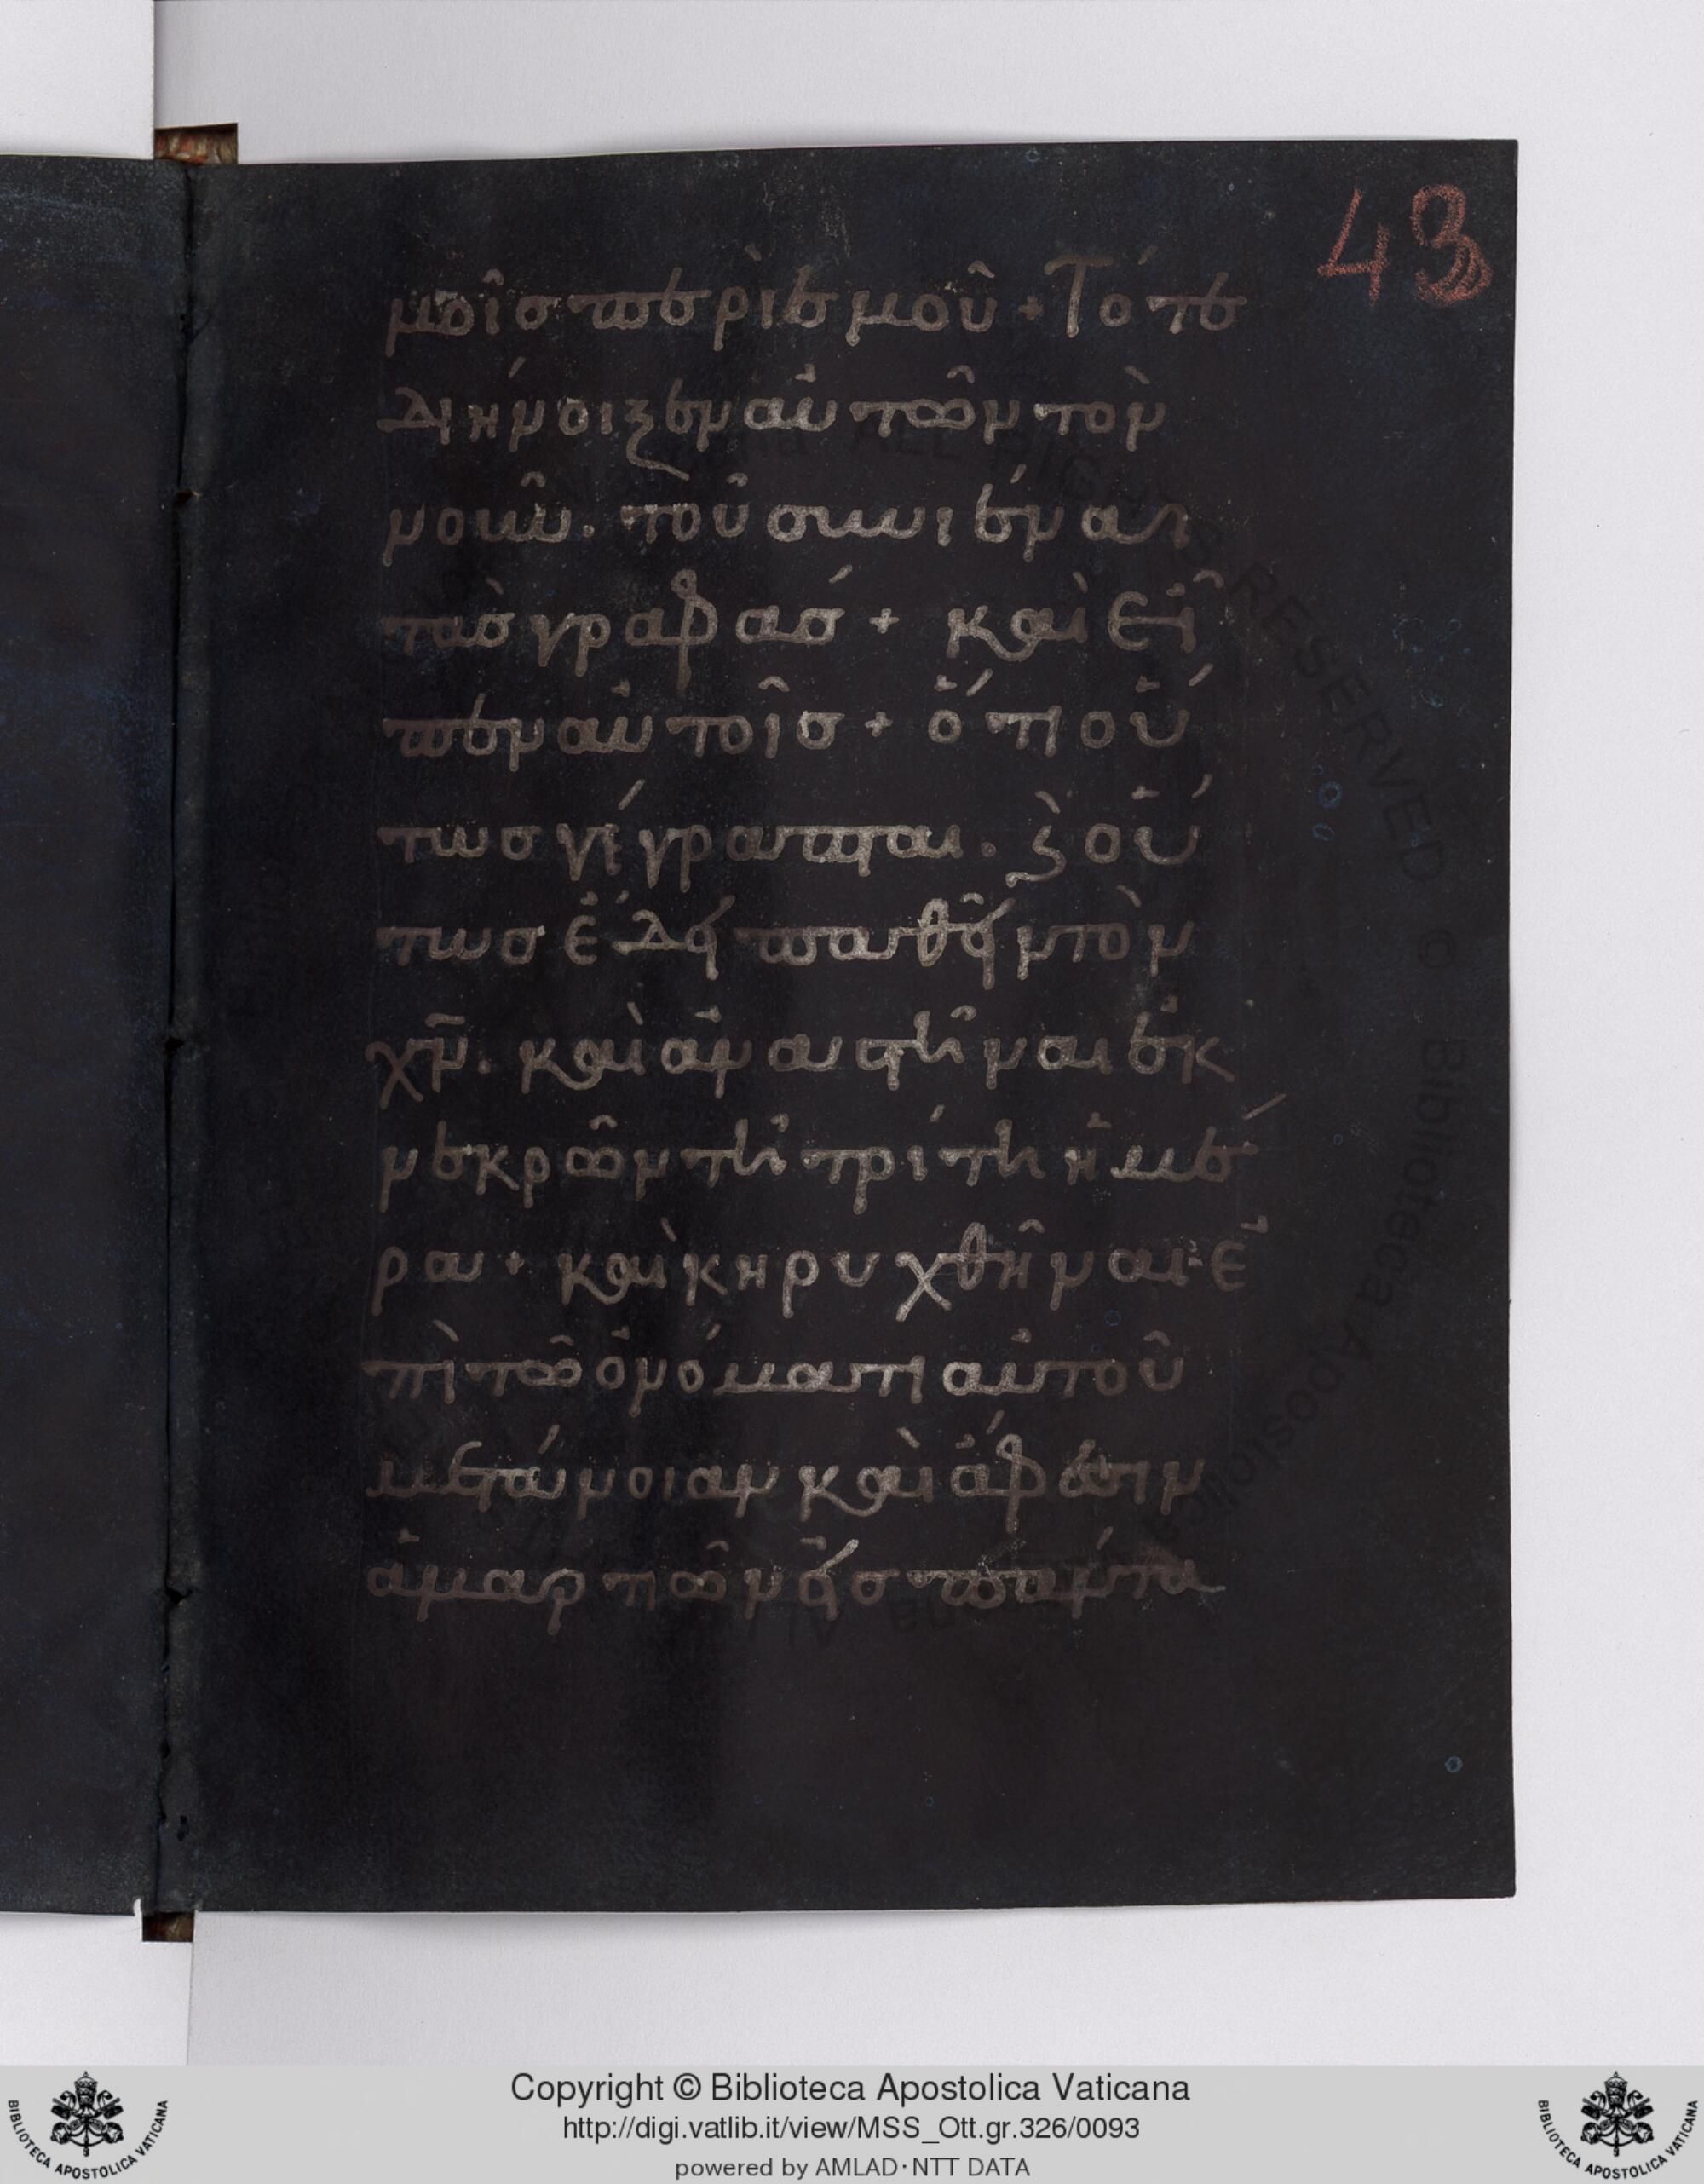 43
μοῖσ περὶ ἐμοῦ + Τότε
διήνοιξεν αὐτῶν τὸν
νοῦν. τοῦ συνιέναι
τὰσ γραφάσ + καὶ εἶ
πεν αὐτοῖσ + ὅτι οὕ
τωσ γέγραπται. ϗ οὕ
τωσ ἔδει παθεῖν τὸν
χν̅. καὶ ἀναστῆναι ἐκ
νεκρῶν τῆ τρίτη ἡμέ
ρα + καὶ κηρυχθῆναι ἐ
πὶ τῶ ὀνόματι αὐτοῦ
μετάνοιαν καὶ ἄφεσιν
ἁμαρτιῶν εἰσ πάντα
Copyright © Biblioteca Apostolica Vaticana
http://digi.vatlib.it/view/MSS_Ott.gr.326/0093
powered by AMLAD·NTT DATA
BIBLIOTECA APOSTOLICA VATICANA
BIBLIOTECA APOSTOLICA VATICANA